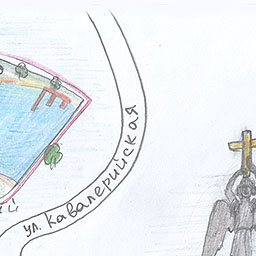 ул. Кавалерийская